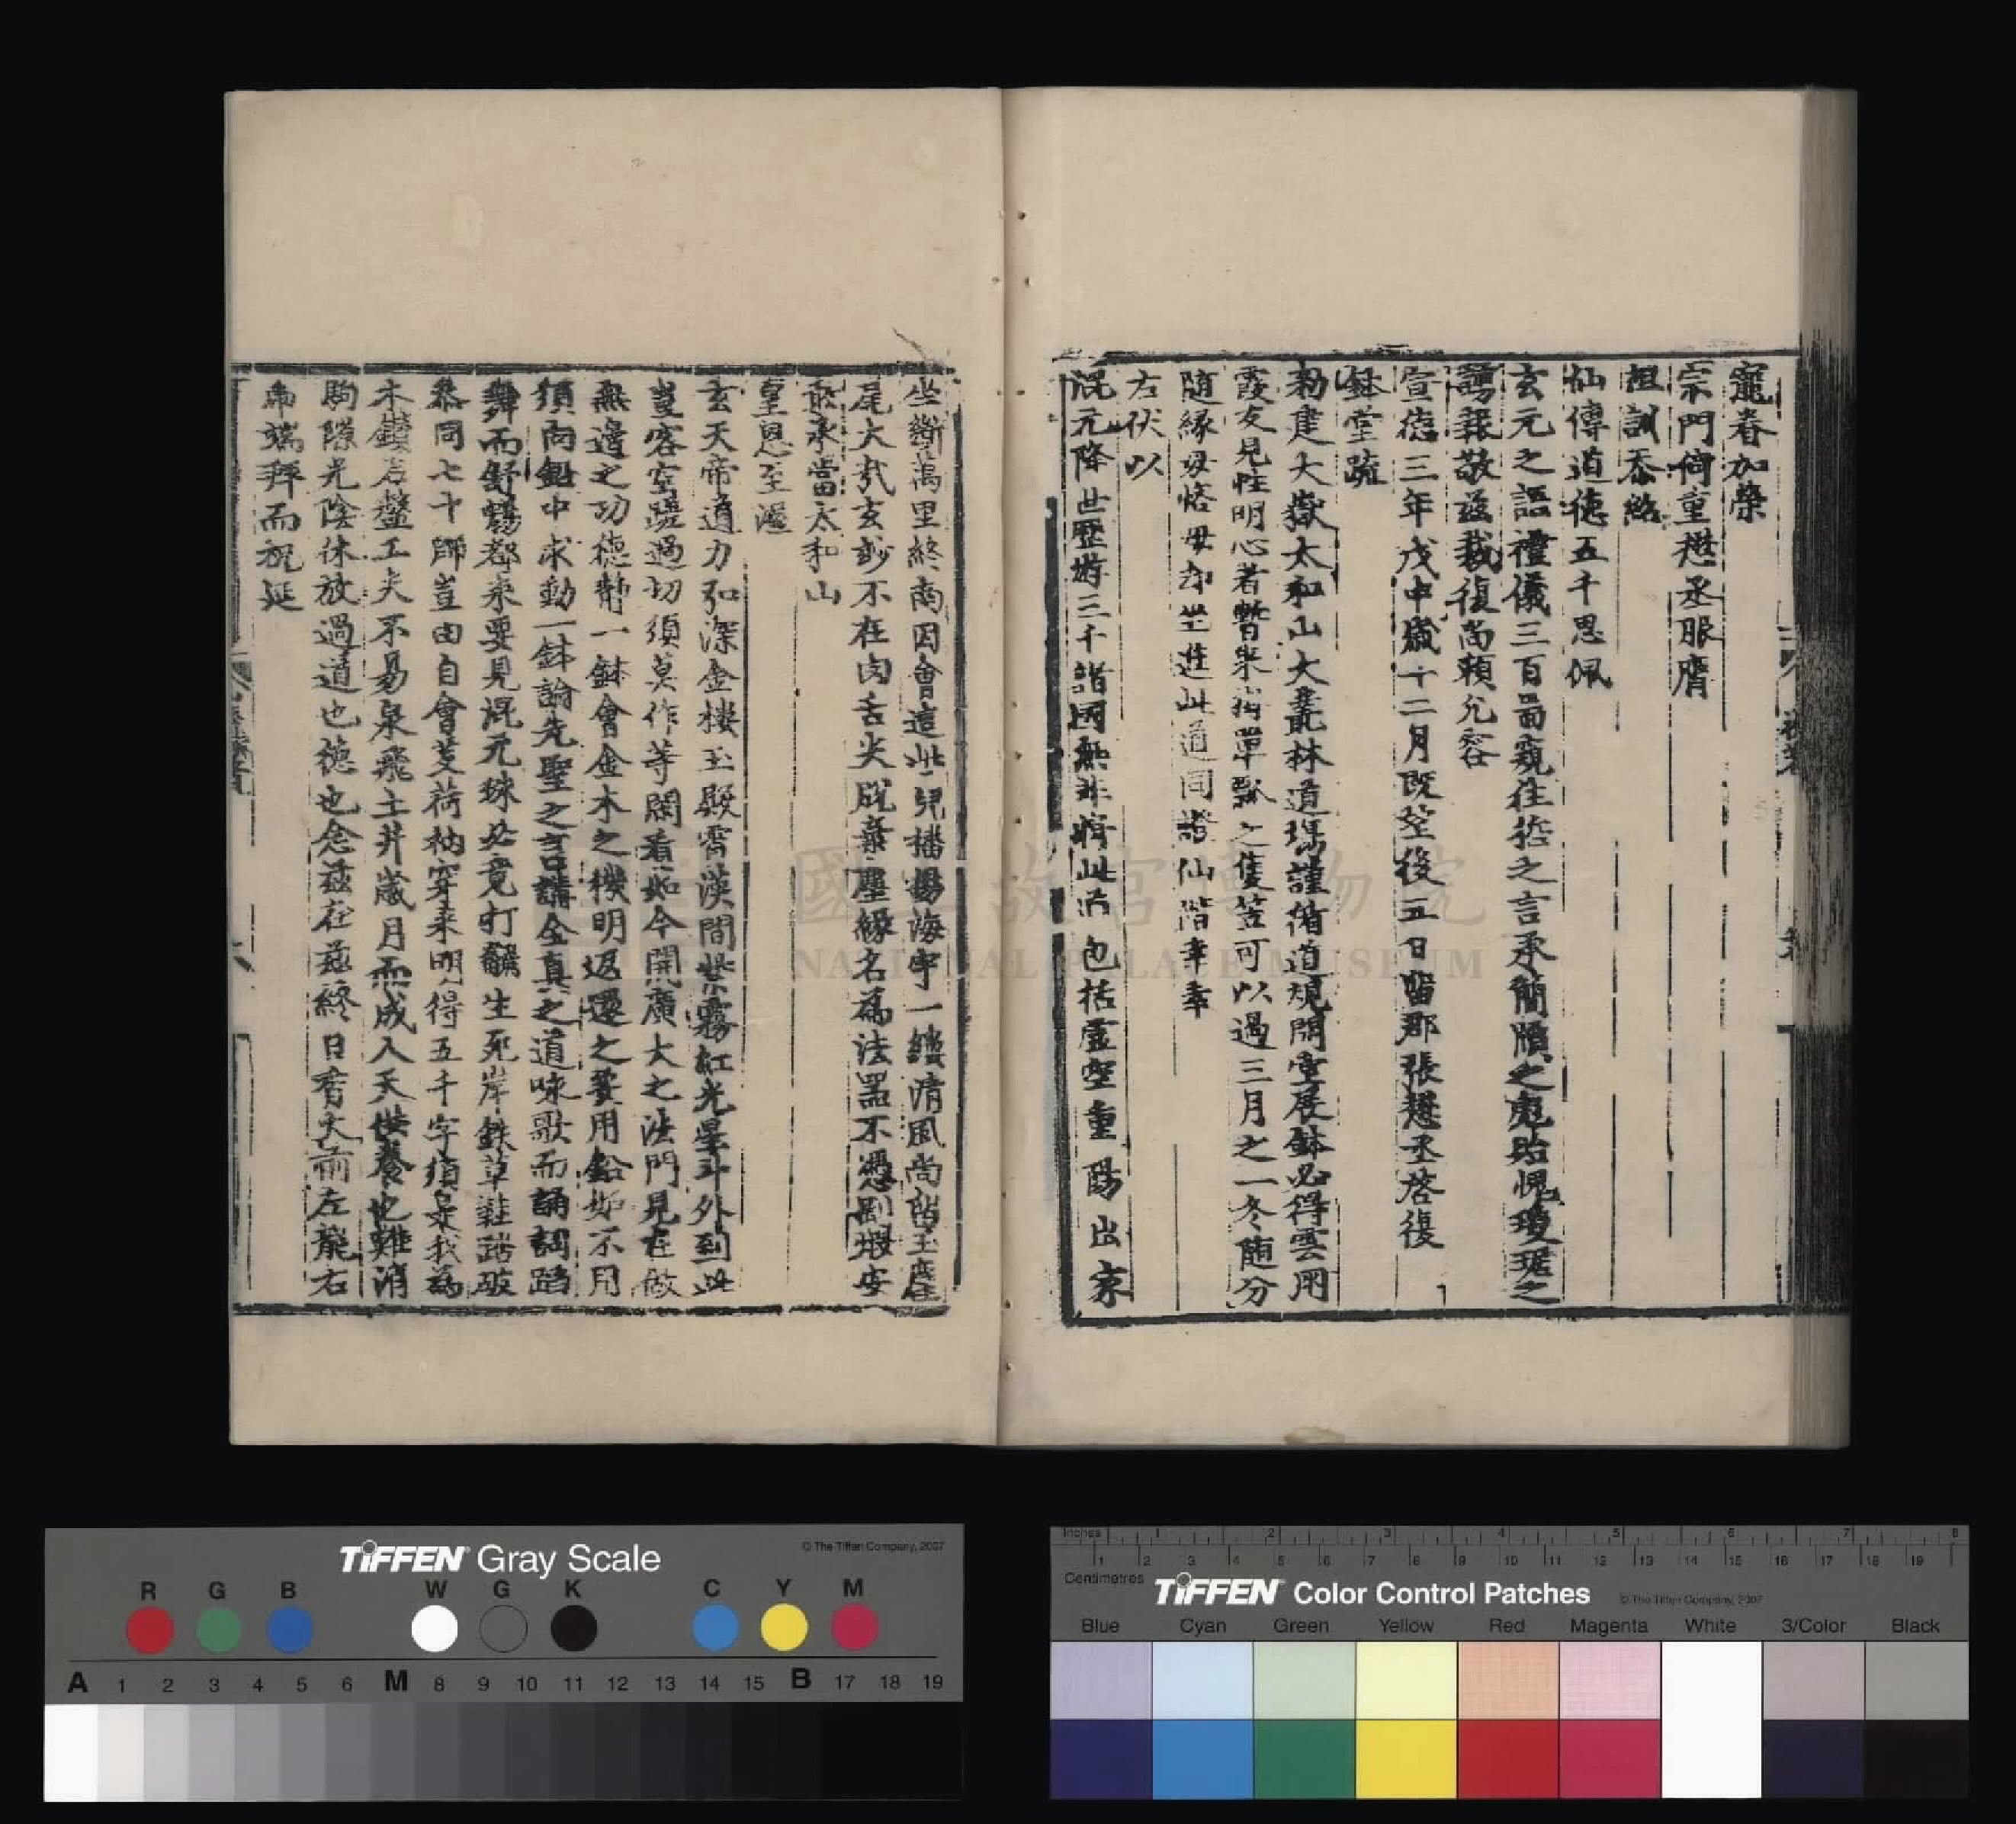 寵眷加榮
宗門倚重懋丞服膺
祖訓忝紹
仙傳道德五千思佩
玄元之語禮儀三百啚窺往哲之言承簡牘之寵貽愧瓊琚之
謭報敬茲裁復尚賴允容
宣德三年戊申歲十二月既望後五日留那張懋丞啓復
鉢堂疏
勑建大嶽太和山大叢林道場謹循道規開堂展鉢必得雲朋
霞友見性明心者暫來掛單瓢之隻笠可以過三月之一冬随分
隨緣毋恡毋却坐進此道同證仙階幸幸
右伏以
混元降世歷遊三千諸國無非將此 包括虛空重陽出家
坐斷萬里終南因會這些兒播揚海宇一縷清風尚留玉麈
尾大哉玄妙不在肉舌尖脫棄塵緣名為法器不憑 安
敢承當太和山
皇恩至渥
玄天帝道力弘深金樓玉殿霄漢間紫霧紅光星斗外到此
豈容空蹉過切須莫作等閑看如今開廣大之法門見在做
無邊之功德攢一鉢會金木之機明返還之要用鉛始不用
須向鉛中求動一鉢論先聖之言講全真之道咏歌而誦詞蹈
舞而舒暢都來要見混元珠必竟打飜生死岸鉄草鞋踏破
恭同七十師豈由自會芰荷衲穿來明得五千字須是我為
木鑽石盤工夫不易泉飛土井歲月而成入天供養也難消
駒隙光陰休放過道也德也念茲在茲終日脊天前左龍右
帝端拜而祝延
TIFFEN Gray Scale
© The Tiffen Company, 2007
R G B W G K C Y M
A 1 2 3 4 5 6 M 8 9 10 11 12 13 14 15 B 17 18 19
Inches 1 2 3 4 5 6 7 8
1 2 3 4 5 6 7 8 9 10 11 12 13 14 15 16 17 18 19
Centimetres
TIFFEN Color Control Patches
© The Tiffen Company, 2007
Blue Cyan Green Yellow Red Magenta White 3/Color Black
國立故宮博物院
NATIONAL PALACE MUSEUM